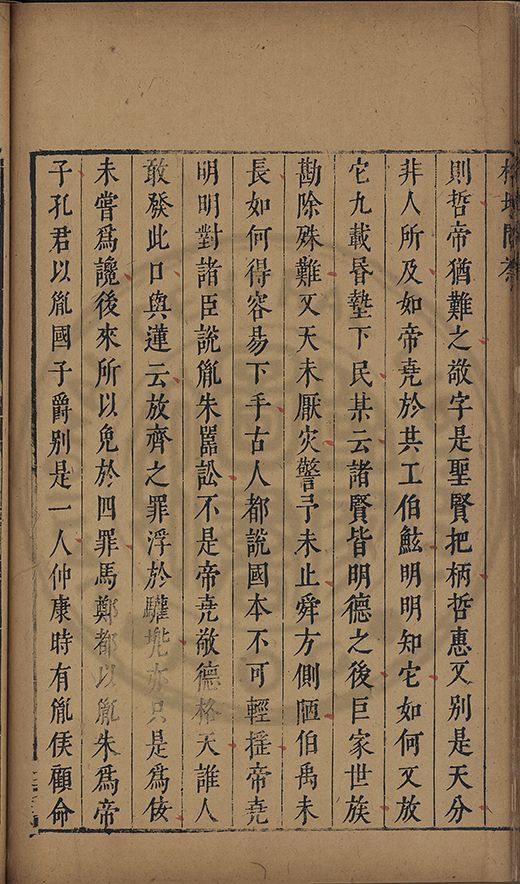 則哲帝猶難之敬字是聖賢把柄哲惠又別是天分
非人所及如帝堯於共工伯鮌明明知它如何又放
它九載昏墊下民某云諸賢皆明德之後巨家世族
勘除殊難又天未厭灾警予未止舜方側陋伯禹未
長如何得容易下手古人都說國本不可輕揺帝堯
明明對諸臣說胤朱嚚訟不是帝堯敬德格天誰人
敢發此口與蓮云放齊之罪浮於驩兠亦只是爲佞
未嘗爲讒後來所以免於四罪馬鄭都以胤朱爲帝
子孔君以胤國子爵别是一人仲康時有胤侯顧命